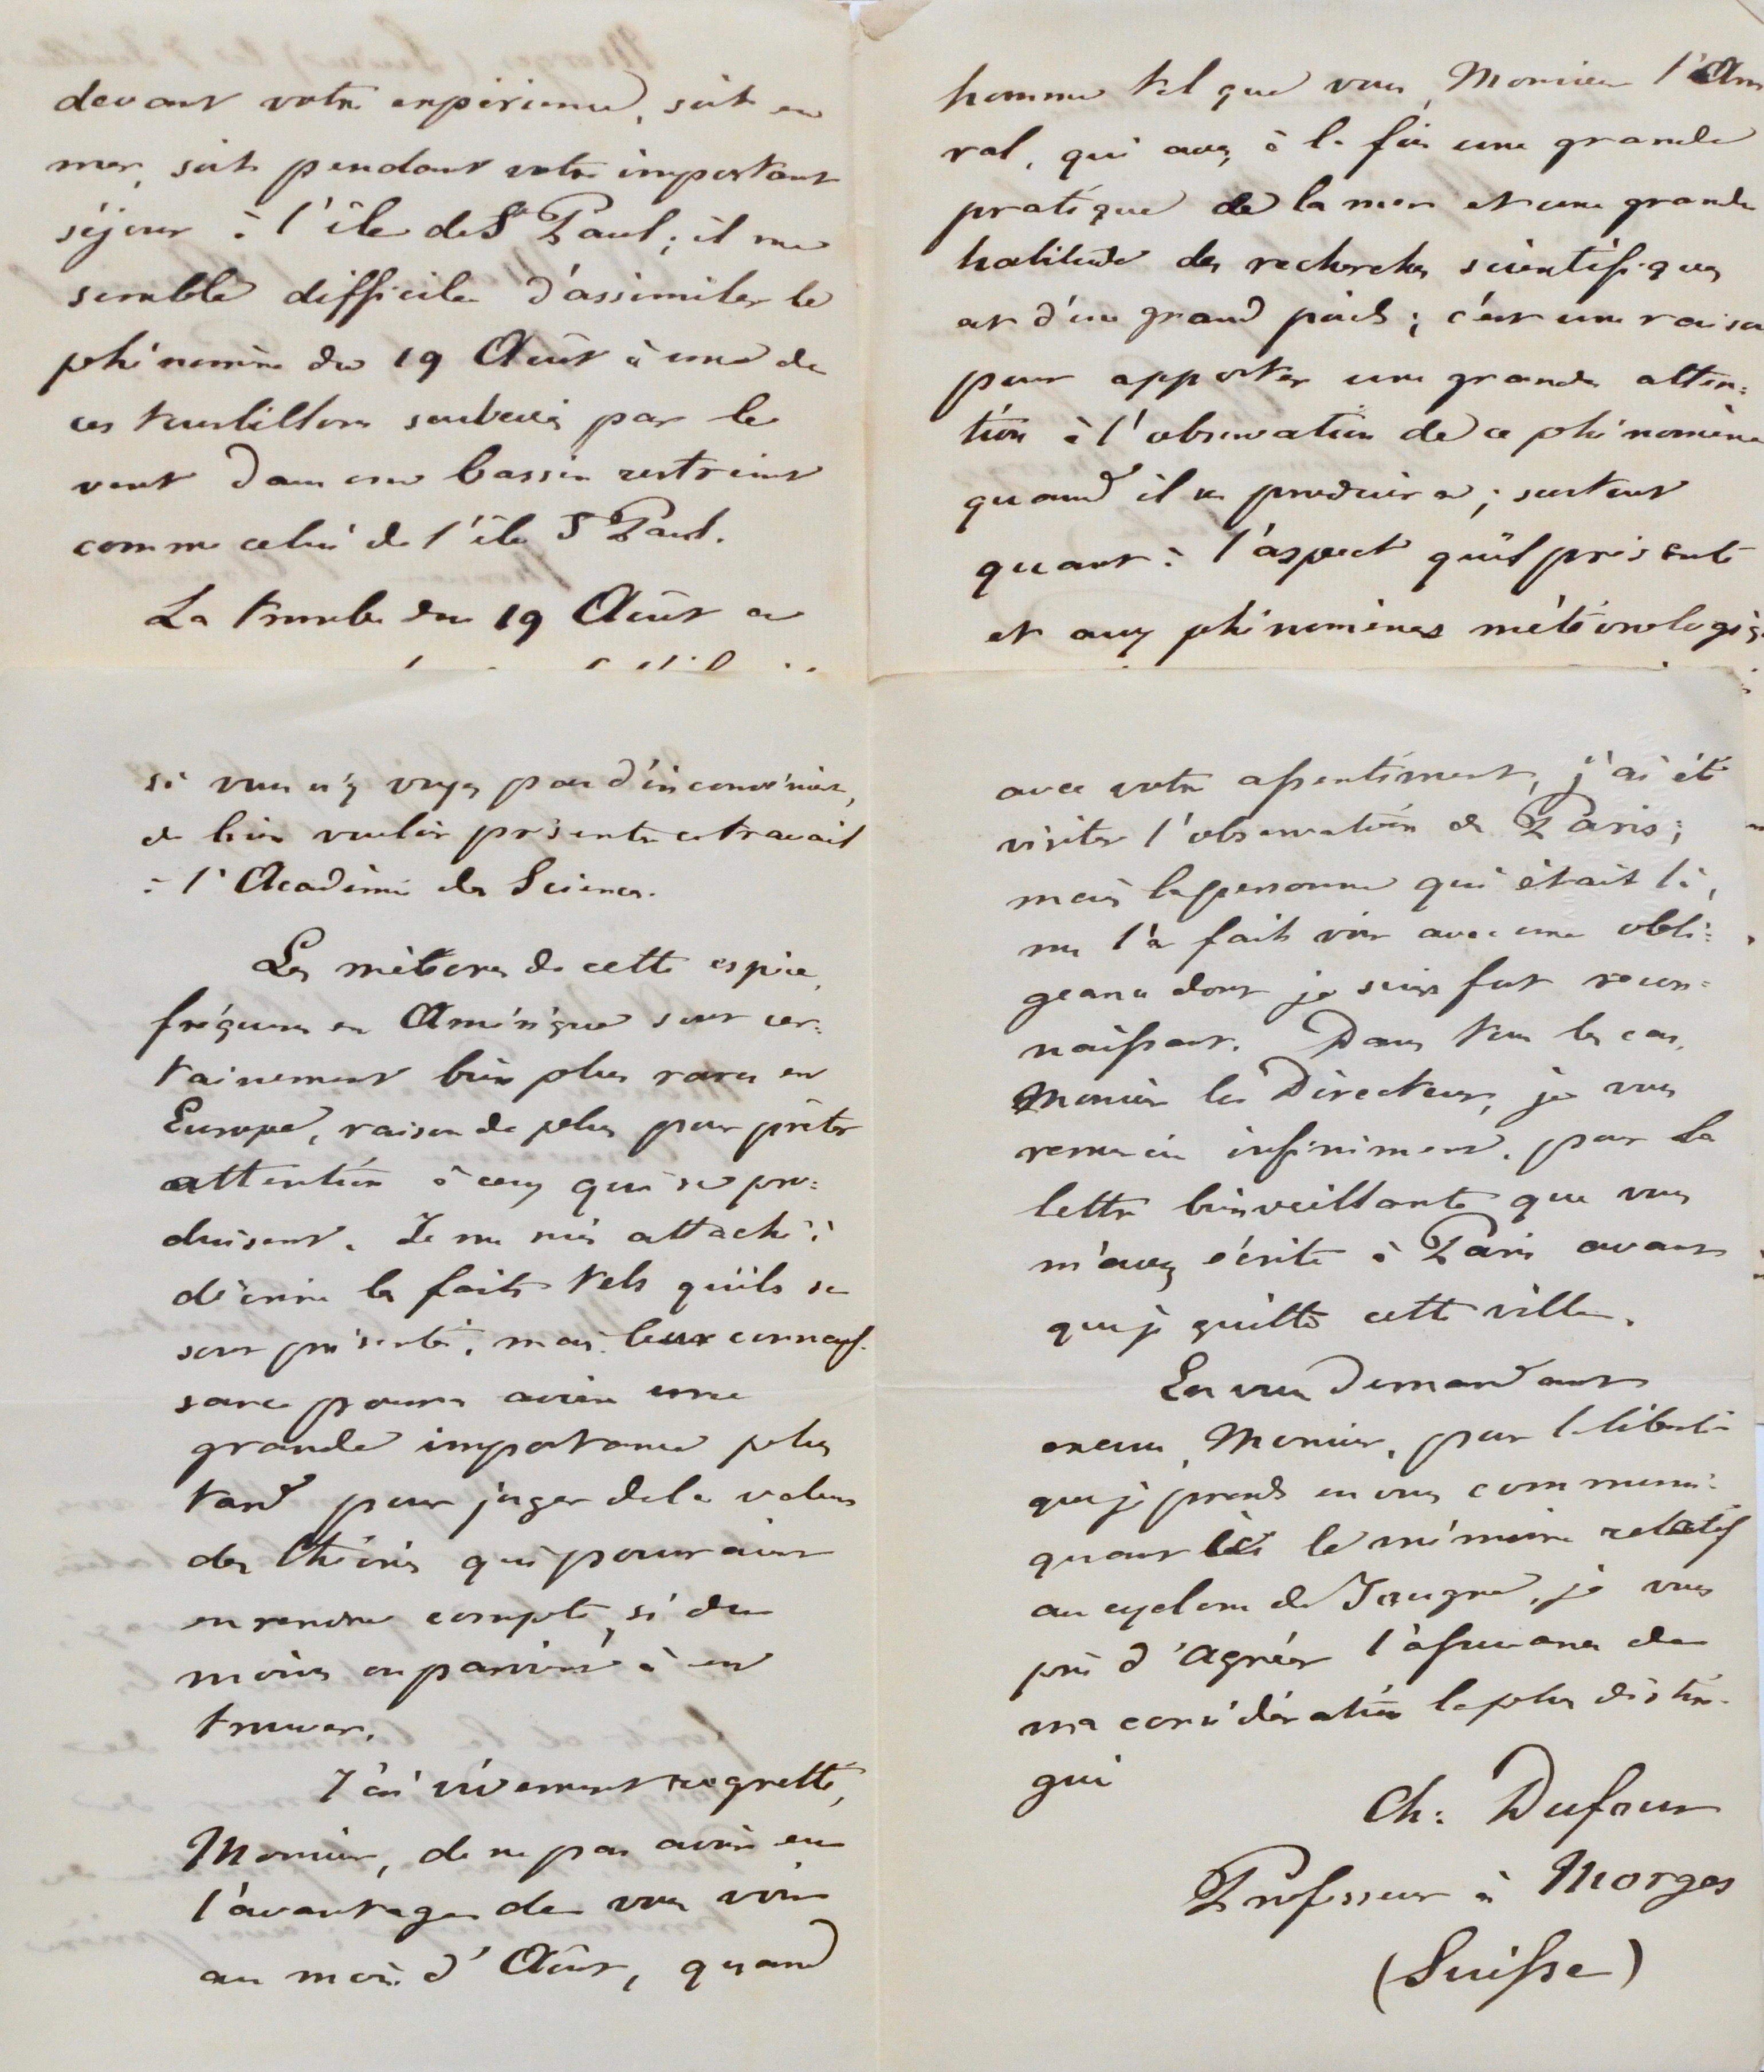 devant votre expérience, soit en
mer, soit pendant votre important
séjour à l'île de St Paul; il me
semble difficile d'assimiler le
phénomène du 19 Août à un de
ces tourbillons soulevés par le
vent dans un bassin restreint
comme celui de l'île St Paul.
La trombe du 19 Août a
si vous n'y voyez pas d'inconvénient,
de bien vouloir présenter ce travail
à l'Académie des Sciences.
Les météores de cette espèce,
fréquens en Amérique sont cer=
tainement bien plus rares en
Europe, raison de plus pour prêter
attention à ceux qui se pro=
duisent. Je me suis attaché à
décrire les faits tels qu'ils se
sont présentés, mais leur connais-
sance pourra avoir une
grande importance plus
tard pour juger de la valeur
des théories qui pourraient
en rendre compte, si du
moins on parvient à en
trouver.
J'ai vivement regretté,
Monsieur, de ne pas avoir eu
l'avantage de vous voir
au mois d'Août, quand
homme tel que vous, Monsieur l'Ami
ral, qui avez à la fois une grande
pratique de la mer et une grande
habitude des recherches scientifiques
est d'un grand poids; c'est une raison
pour apporter une grande atten=
tion à l'observation de ce phénomène
quand il se produira; surtout
quant à l'aspect qu'il présente
et aux phénomènes météorologiq
avec votre assentiment, j'ai été
visiter l'observatoire de Paris;
mais la personne qui était là,
me l'a fait voir avec une obli=
geance dont je suis fort recon=
naissant. Dans tous les cas,
Monsieur le Directeur, je vous
remercie infiniment, pour la
lettre bienveillante que vous
m'avez écrite à Paris avant
que je quitte cette ville.
En vous demandant
excuse, Monsieur, pour la liberté
que je prends en vous communi=
quant ici le mémoire relatif
au cyclone de Jougne, je vous
prie d'agréer l'assurance de
ma considération la plus distin-
guée
Ch: Dufour
Professeur à Morges
(Suisse)